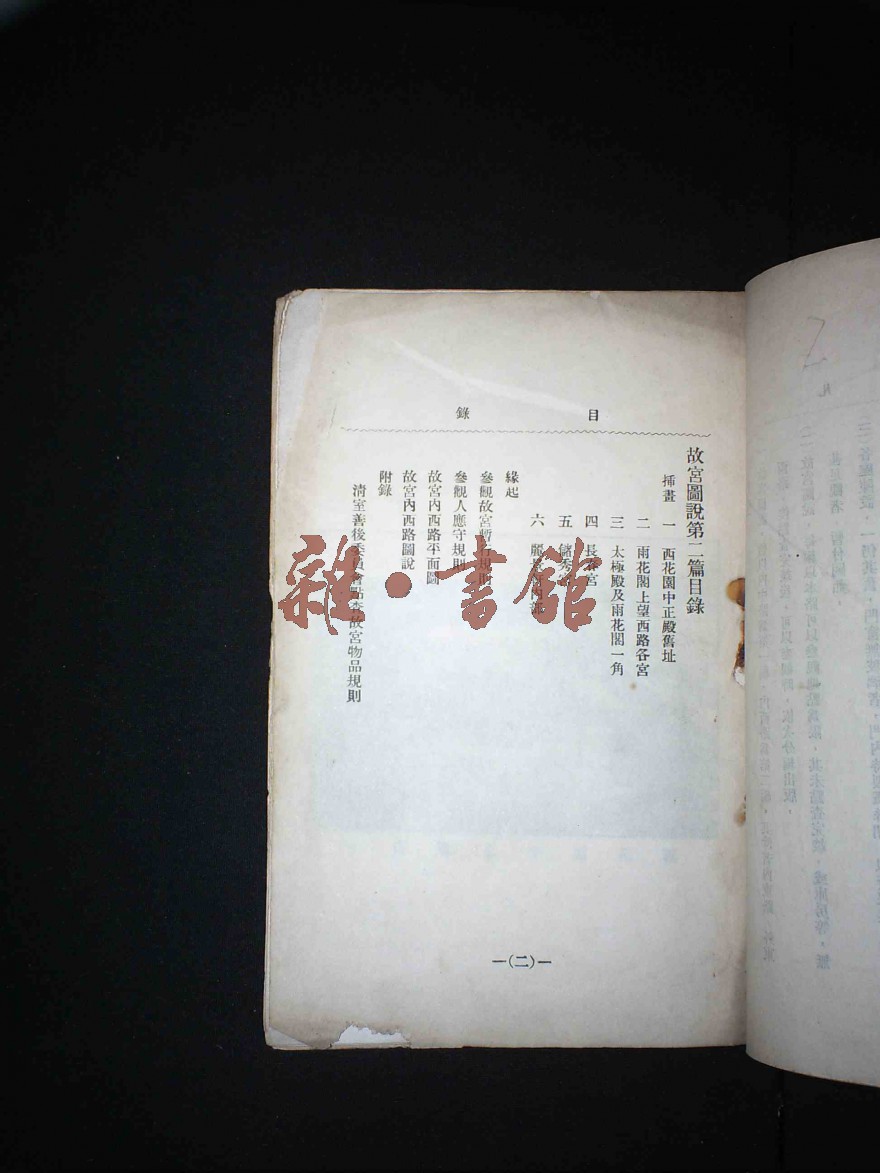 目錄
故宮圖說第二篇目錄
揷畫 一 西花園中正殿舊址
二 雨花閣上望西路各宮
三 太極殿及雨花閣一角
四 長春宮
五 儲秀宮
六 麗景軒內部
緣起
參觀故宮暫行規則
參觀人應守規則
故宮內西路平面圖
故宮內西路圖說
附錄
清室善後委員會點查故宮物品規則
—(二)—
雜·書館
凡